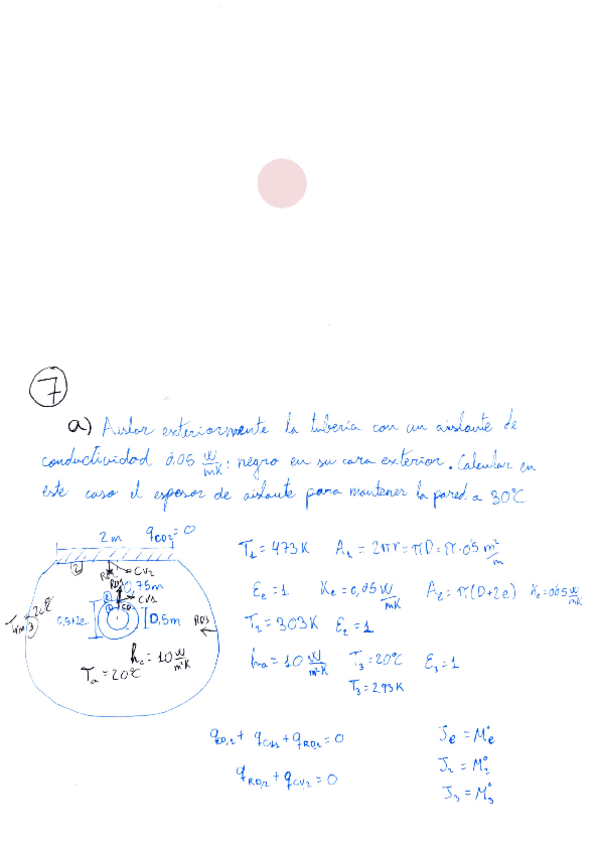 7
a) Aislar exteriormente la tubería con un aislante de
conductividad 0.05 W/mK; negro en su cara exterior. Calcular en
este caso el espesor de aislante para mantener la pared a 30ºC
2m qCD2=0
2
CV2
0,75m
CV2
CD
0,5+2e
0,5m
RD3
3
ha=10 W/m²K
Ta=20ºC
T1=473K A1=2πr=πD=π·0'5 m²/m
Ee=1 Ke=0,05 W/mK Ae=π(D+2e) Ke=0'05 W/mK
T2=303K E2=1
ha=10 W/m²K T3=20ºC E3=1
T3=293K
qCV2+qRD2=0
qRD,2+qCV,2=0
Je=M°e
J2=M°2
J3=M°3